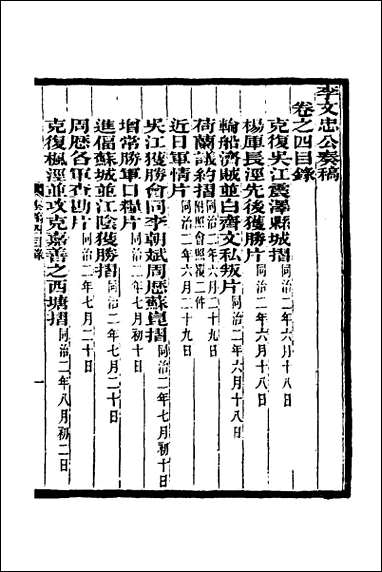 李文忠公奏稿
卷之四目錄
克復吳江震澤縣城摺同治二年六月十八日
楊庫長涇先後獲勝片同治二年六月十八日
輪船濟賊並白齊文私叛片同治二年六月十八日
荷蘭議約摺同治二年六月二十九日附照會照覆二件
近日軍情片同治二年六月二十九日
吳江獲勝會同李朝斌周歷蘇崑摺同治二年七月初十日
增常勝軍口糧片同治二年七月初十日
進偪蘇城並江陰獲勝摺同治二年七月二十日
周歷各軍查勘片同治二年七月二十日
克復楓涇並攻克嘉善之西塘摺同治二年八月初二日
奏稿四目錄
一